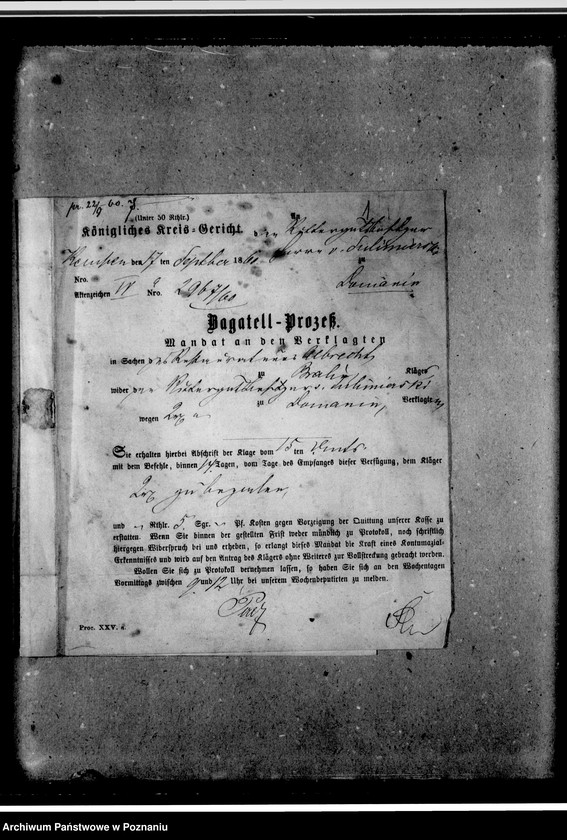 pr. 22/9 60.
(Unter 50 Rthlr.)
Königliches Kreis-Gericht.
An
Kempen den 17 ten September 1860
zu
Nro.
Domanin
Aktenzeichen IV Nro. 2967/60
Bagatell-Prozeß.
Mandat an den Verklagten
in Sachen des Restaurateur Albrecht
zu Kläger
wider den Rittergutsbesitzer v.
zu Domanin, Verklagten
wegen
Sie erhalten hierbei Abschrift der Klage vom 15 ten
mit dem Befehle, binnen 14 Tagen, vom Tage des Empfanges dieser Verfügung, dem Kläger
zu bezahlen,
und - Rthlr. 5 Sgr. - Pf. Kosten gegen Vorzeigung der Quittung unserer Kasse zu
erstatten. Wenn Sie binnen der gestellten Frist weder mündlich zu Protokoll, noch schriftlich
hiergegen Widerspruch bei uns erheben, so erlangt dieses Mandat die Kraft eines Kontumazial-
Erkenntnisses und wird auf den Antrag des Klägers ohne Weiteres zur Vollstreckung gebracht werden.
Wollen Sie sich zu Protokoll vernehmen lassen, so haben Sie sich an den Wochentagen
Vormittags zwischen 9 und 12 Uhr bei unserem Wochendeputirten zu melden.
Proc. XXV. a.
Archiwum Państwowe w Poznaniu